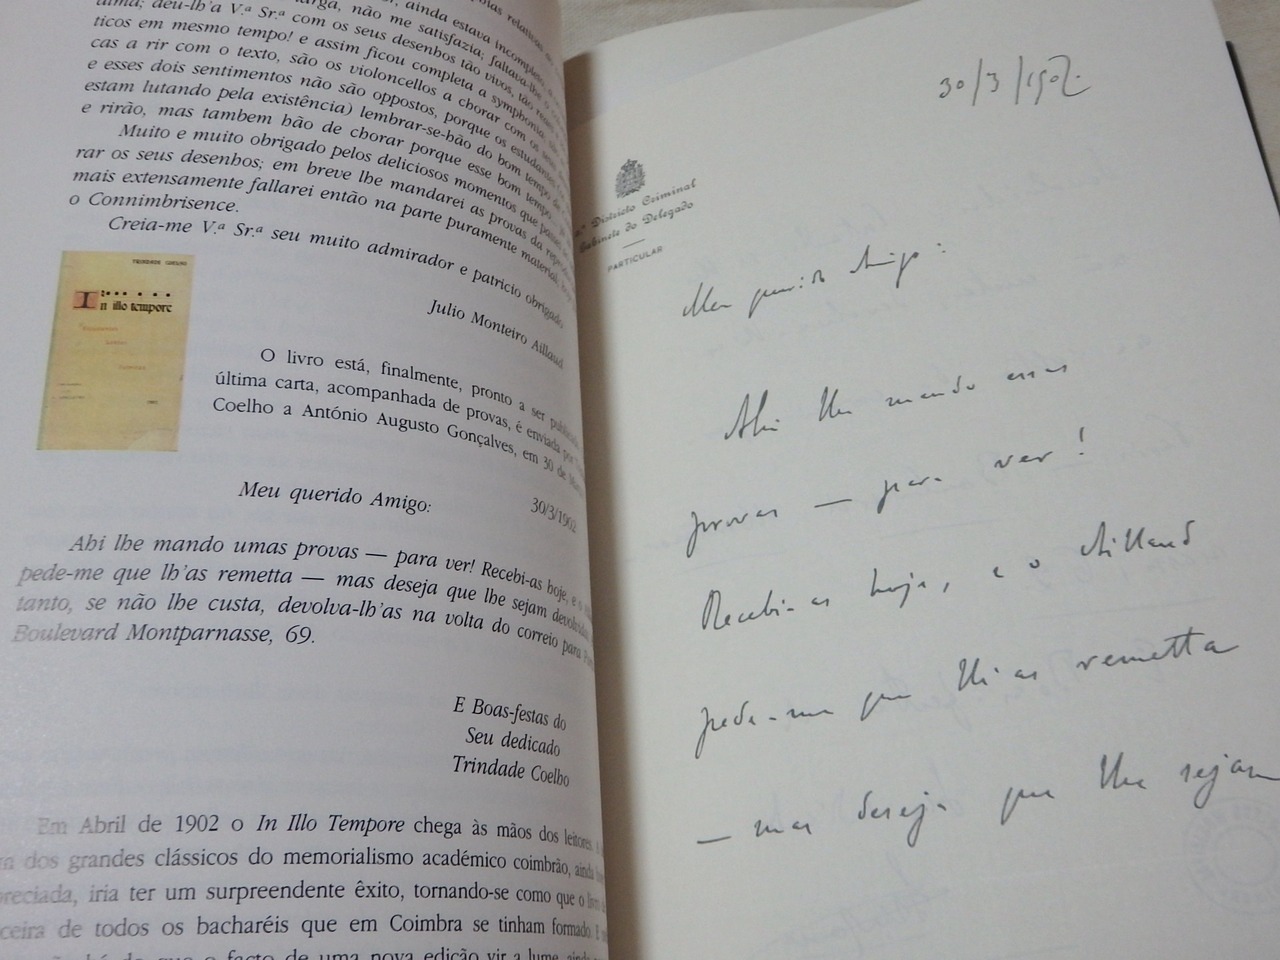 ainda estava incompleta
não me satisfazia; faltava-lhe
alma; deu-lh'a V.ª Sr.ª com os seus desenhos tão vivos, tão
ticos em mesmo tempo! e assim ficou completa a symphonia:
cas a rir com o texto, são os violoncellos a chorar com os
e esses dois sentimentos não são oppostos, porque os estudantes
estam lutando pela existência) lembrar-se-hão do bom tempo
e rirão, mas tambem hão de chorar porque esse bom tempo
Muito e muito obrigado pelos deliciosos momentos que passei
rar os seus desenhos; em breve lhe mandarei as provas da
mais extensamente fallarei então na parte puramente material,
o Connimbrisence.
Creia-me V.ª Sr.ª seu muito admirador e patricio obrigado
Julio Monteiro Aillaud
TRINDADE COELHO
In illo tempore
O livro está, finalmente, pronto a ser publicado
última carta, acompanhada de provas, é enviada por
Coelho a António Augusto Gonçalves, em 30 de
30/3/1902
Meu querido Amigo:
Ahi lhe mando umas provas — para ver! Recebi-as hoje, e o
pede-me que lh'as remetta — mas deseja que lhe sejam devolvidas
tanto, se não lhe custa, devolva-lh'as na volta do correio para
Boulevard Montparnasse, 69.
E Boas-festas do
Seu dedicado
Trindade Coelho
Em Abril de 1902 o In Illo Tempore chega às mãos dos leitores.
dos grandes clássicos do memorialismo académico coimbrão, ainda
preciada, iria ter um surpreendente êxito, tornando-se como que o livro
ceira de todos os bacharéis que em Coimbra se tinham formado. E
de uma nova edição vir a lume
30/3/1902
Districto Criminal
Gabinete do Delegado
PARTICULAR
Meu querido Amigo:
Ahi lhe mando umas
provas — para ver!
Recebi-as hoje, e o Aillaud
pede-me que lh'as remetta
— mas deseja que lhe sejam